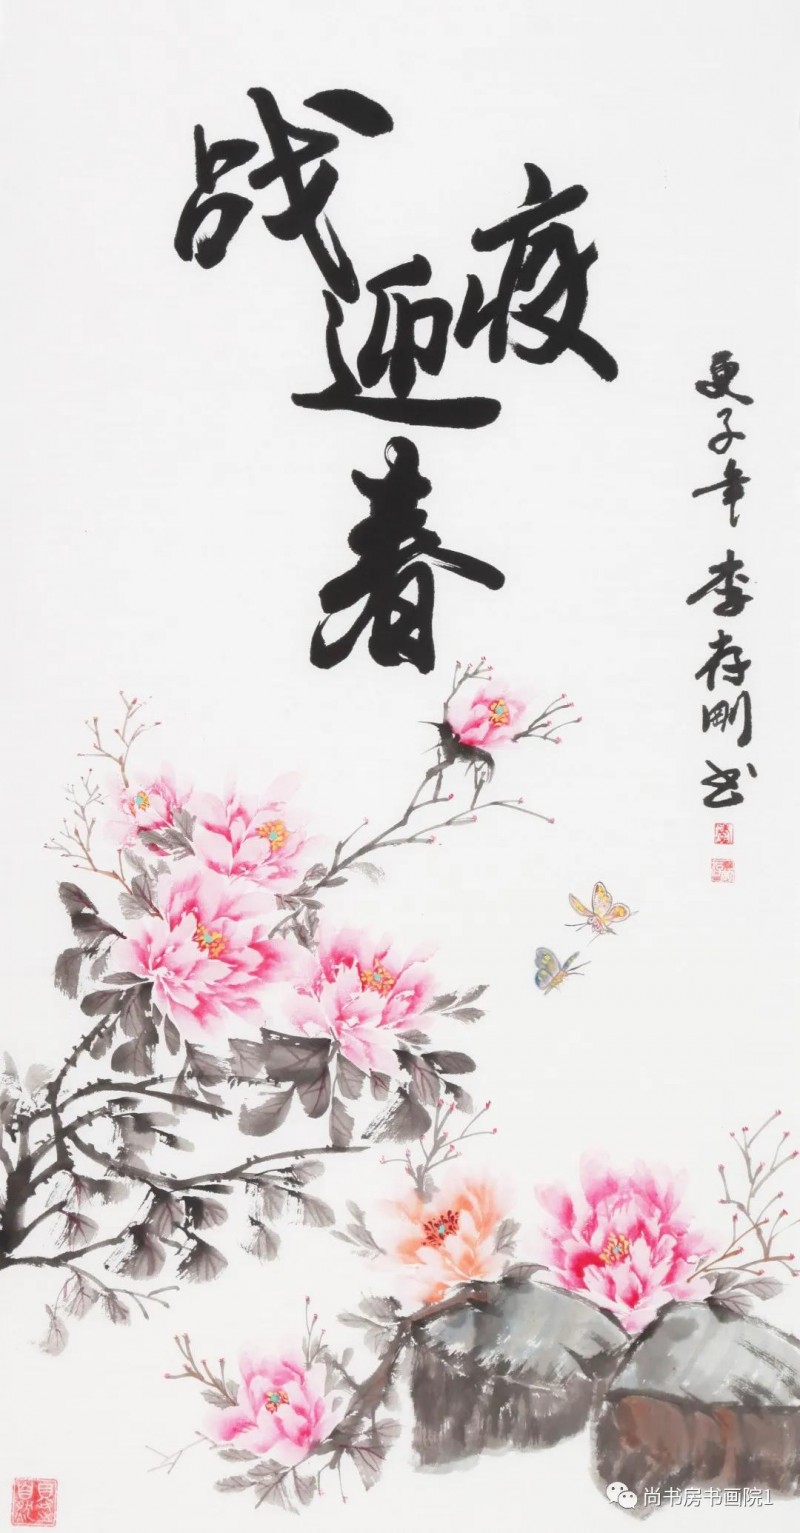 战疫迎春
庚子年 李存刚书
尚书房书画院1